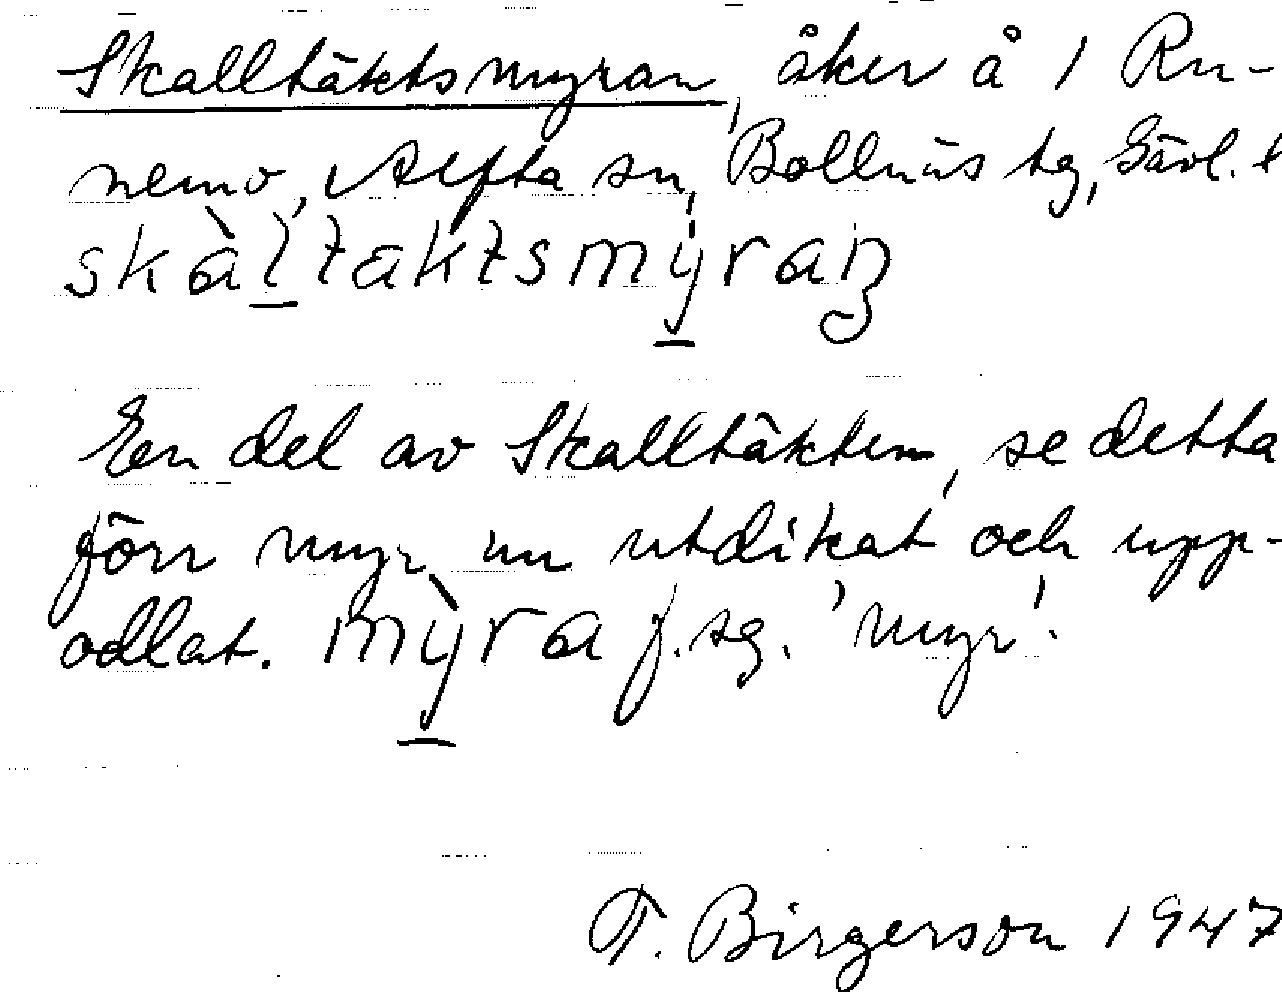 Skalltäktsmyran, åker å 1 Run-
nemo, Alfta sn, Bollnäs tg, Gävl. l
skàltaktsmỳran
En del av Skalltäkten, se detta
förr myr nu utdikat och upp-
odlat. mỳra f. sg. 'myr'.
T. Birgerson 1947